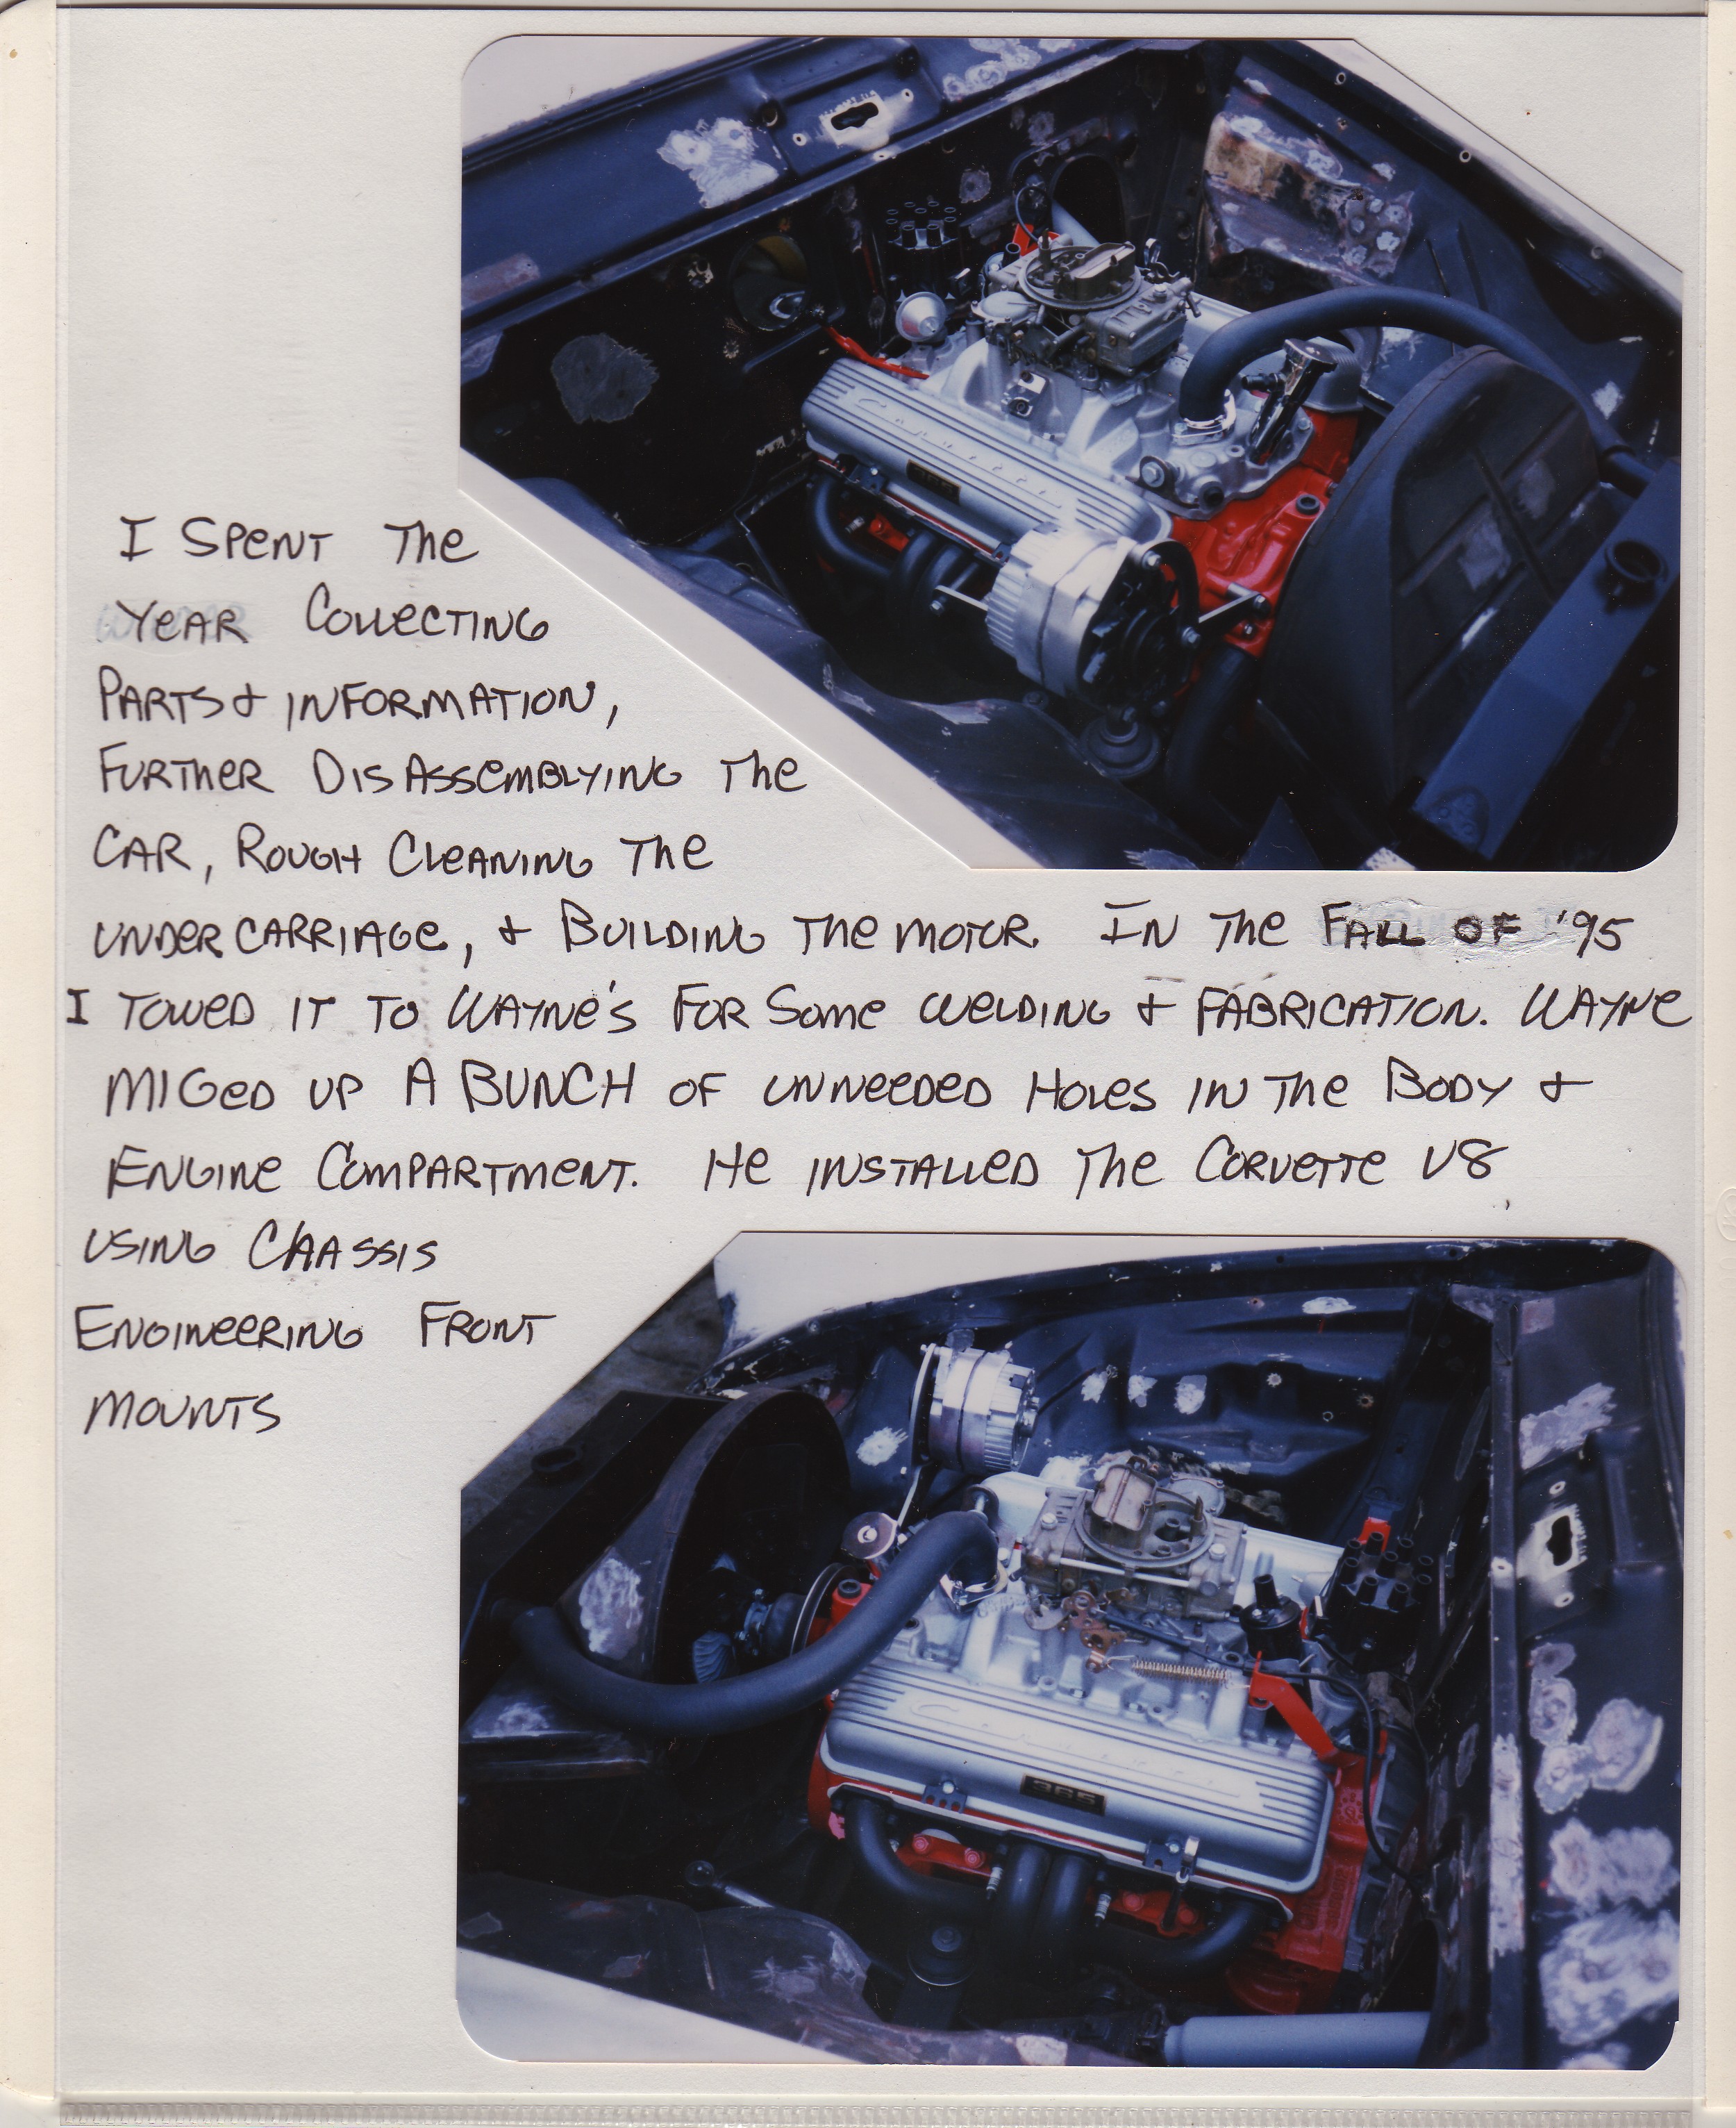 I Spent The
Year Collecting
Parts & Information,
Further Disassemblying The
Car, Rough Cleaning The
Undercarriage, & Building The motor. In The Fall of '95
I Towed it to Wayne's For Some Welding & Fabrication. Wayne
miged up a Bunch of unneeded Holes in The Body &
Engine Compartment. He installed The Corvette V8
using Chassis
Engineering Front
mounts
Corvette
365
Corvette
365